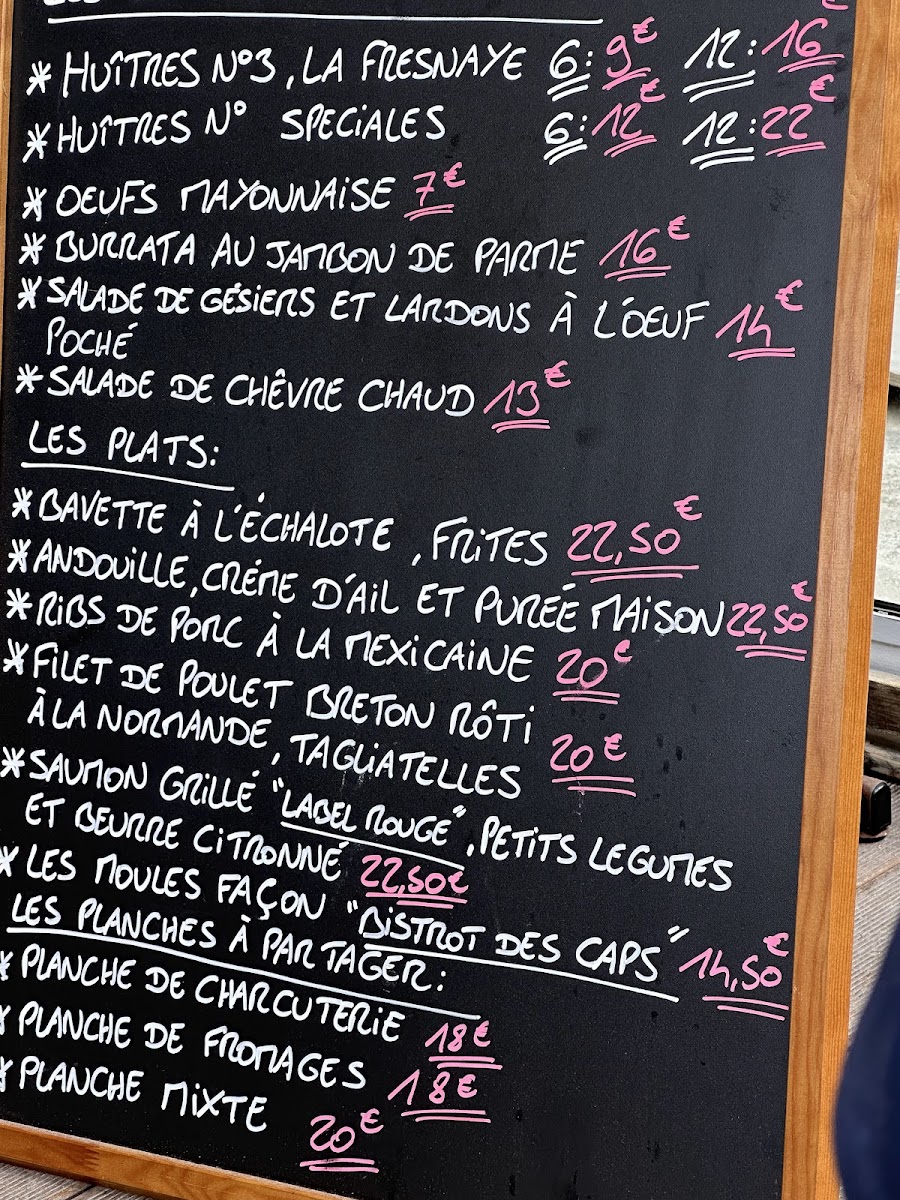 * HUÎTRES N°3, LA FRESNAYE 6: 9€ 12: 16€
* HUÎTRES N° SPECIALES 6: 12€ 12: 22€
* OEUFS MAYONNAISE 7€
* BURRATA AU JAMBON DE PARME 16€
* SALADE DE GÉSIERS ET LARDONS À L'OEUF 14€
POCHÉ
* SALADE DE CHÊVRE CHAUD 13€
LES PLATS:
* BAVETTE À L'ÉCHALOTE, FRITES 22,50€
* ANDOUILLE, CRÉME D'AIL ET PURÉE MAISON 22,50€
* RIBS DE PORC À LA MEXICAINE 20€
* FILET DE POULET BRETON RÔTI
À LA NORMANDE, TAGLIATELLES 20€
* SAUMON GRILLÉ "LABEL ROUGE", PETITS LEGUMES
ET BEURRE CITRONNÉ 22,50€
* LES MOULES FAÇON "BISTROT DES CAPS" 14,50€
LES PLANCHES À PARTAGER:
* PLANCHE DE CHARCUTERIE 18€
* PLANCHE DE FROMAGES 18€
* PLANCHE MIXTE 20€